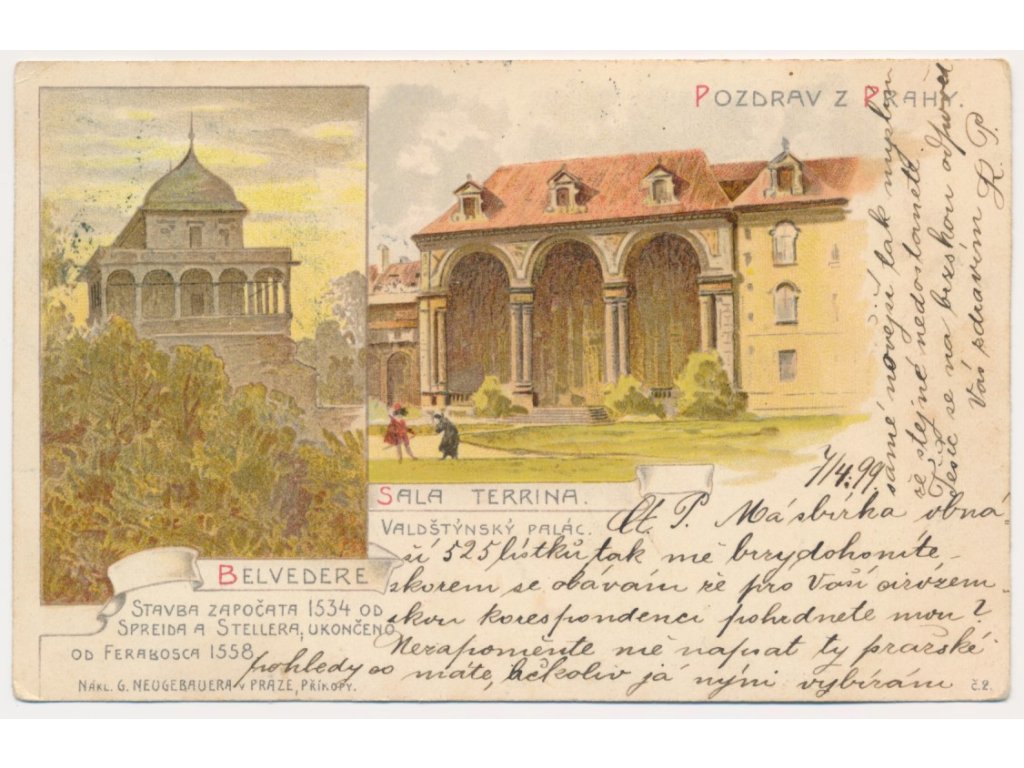 POZDRAV Z PRAHY.
SALA TERRINA.
VALDŠTÝNSKÝ PALÁC.
BELVEDERE
STAVBA ZAPOČATA 1534 OD
SPREIDA A STELLERA, UKONČENO
OD FERABOSCA 1558
NÁKL. G. NEUGEBAUERA V PRAZE, PŘÍKOPY.
č.2.
7/4.99.
Ct. P. Má sbírka obná-
ší 525 lístků, tak mě brzy dohoníte_
skorem se obávám že pro Vaší cizozem
skou korespondenci pohrdnete mou?
Nezapomeňte mě napsat ty pražské
pohledy co máte, ačkoliv já nýní vybírám
samé novější tak myslím
že stejné nedostanete.
Těšíc se na brzskou odpověď
Vás pozdravím K. P.